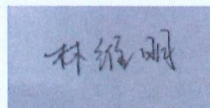 林维明